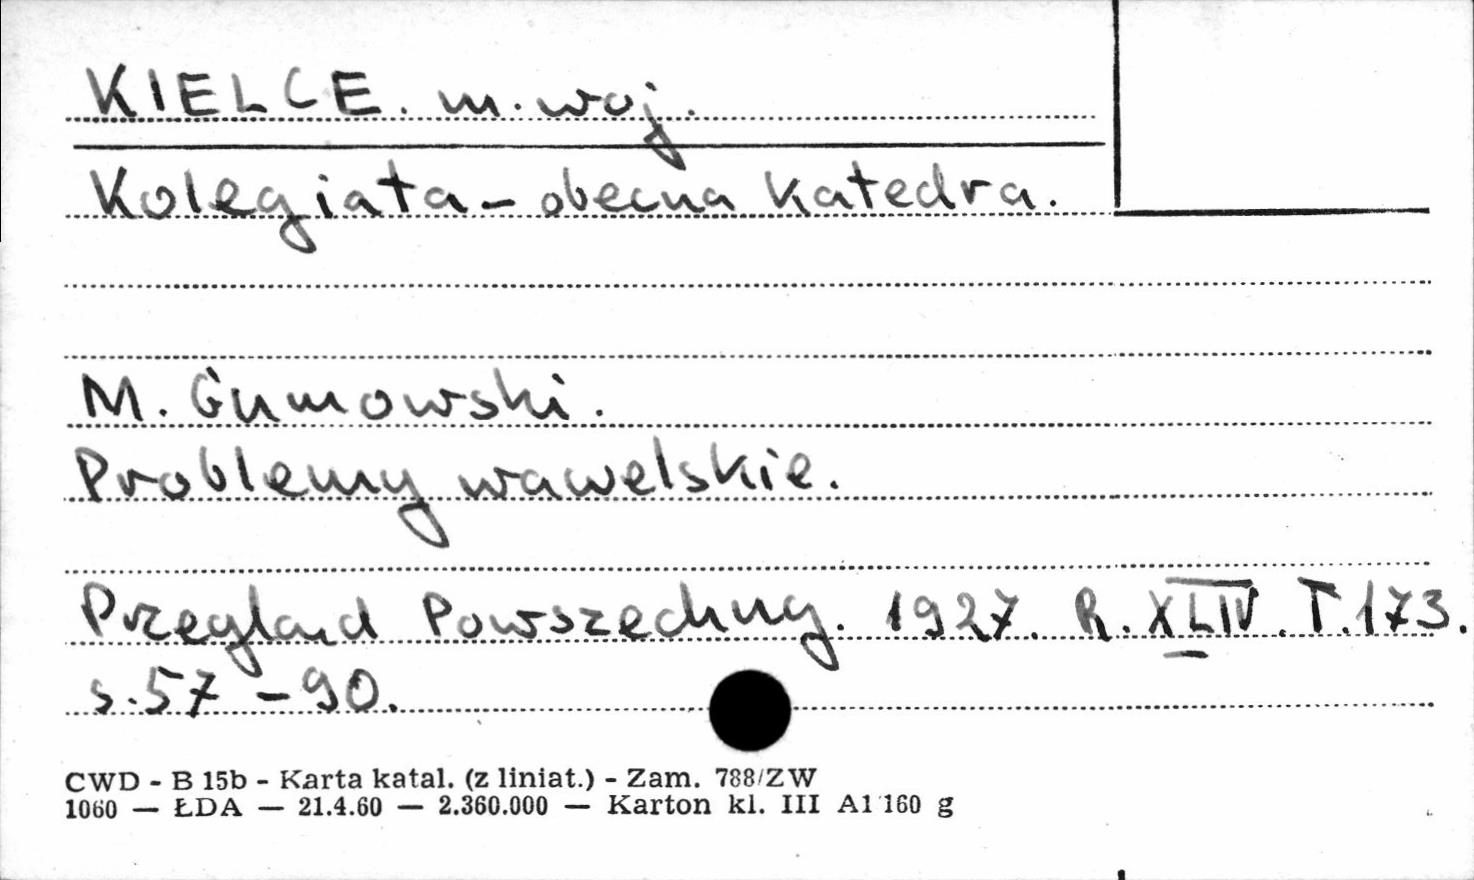 KIELCE. m. woj.
Kolegiata - obecna katedra.
M. Gumowski.
Problemy wawelskie.
Przegląd Powszechny. 1927. R. XLIV. T. 173.
s. 57 - 90.
CWD - B 15b - Karta katal. (z liniat.) - Zam. 788/ZW
1060 — ŁDA — 21.4.60 — 2.360.000 — Karton kl. III A1 160 g